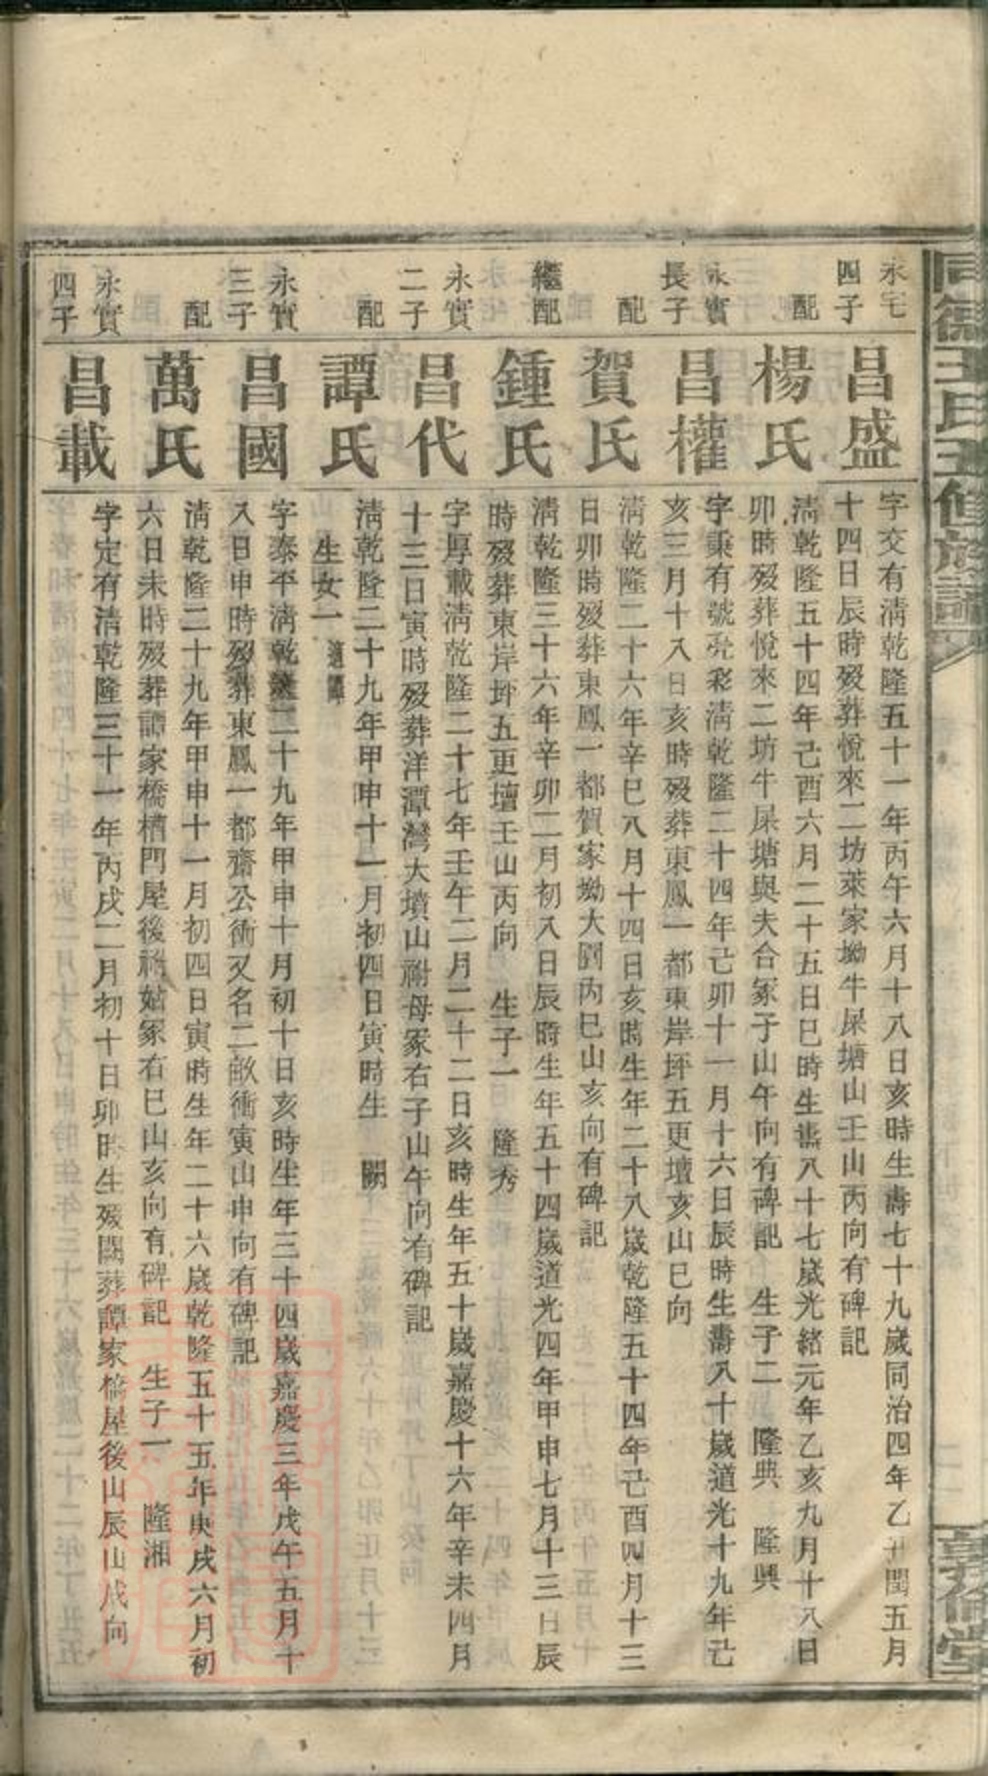 永宅
四子
昌盛
字交有淸乾隆五十一年丙午六月十八日亥時生壽七十九歲同治四年乙丑閏五月
十四日辰時歿葬悅來二坊萊家坳牛屎塘山壬山丙向有碑記
配
楊氏
淸乾隆五十四年己酉六月二十五日巳時生壽八十七歲光緒元年乙亥九月十八日
卯時歿葬悅來二坊牛屎塘與夫合冢子山午向有碑記 生子二 隆典 隆興
永實
長子
昌權
字秉有號亮彩淸乾隆二十四年己卯十一月十六日辰時生壽八十歲道光十九年己
亥三月十八日亥時歿葬東鳳一都東岸坪五更壇亥山巳向
配
賀氏
淸乾隆二十六年辛巳八月十四日亥時生年二十八歲乾隆五十四年己酉四月十三
日卯時歿葬東鳳一都賀家坳大圳丙巳山亥向有碑記
繼配
鍾氏
淸乾隆三十六年辛卯二月初八日辰時生年五十四歲道光四年甲申七月十三日辰
時歿葬東岸坪五更壇壬山丙向 生子一 隆秀
永實
二子
昌代
字厚載淸乾隆二十七年壬午二月二十二日亥時生年五十歲嘉慶十六年辛未四月
十三日寅時歿葬洋潭灣大墳山祔母冢右子山午向有碑記
配
譚氏
淸乾隆二十九年甲申十一月初四日寅時生 闕
生女一 適譚
永實
三子
昌國
字泰平淸乾隆二十九年甲申十月初十日亥時生年三十四歲嘉慶三年戊午五月十
八日申時歿葬東鳳一都齋公衝又名二畝衝寅山申向有碑記
配
萬氏
淸乾隆二十九年甲申十一月初四日寅時生年二十六歲乾隆五十五年庚戌六月初
六日未時歿葬譚家橋槽門屋後祔姑冢右巳山亥向有碑記 生子一 隆湘
永實
四子
昌載
字定有淸乾隆三十一年丙戌二月初十日卯時生歿闕葬譚家橋屋後山辰山戌向
同德王氏五修族譜
敦倫堂